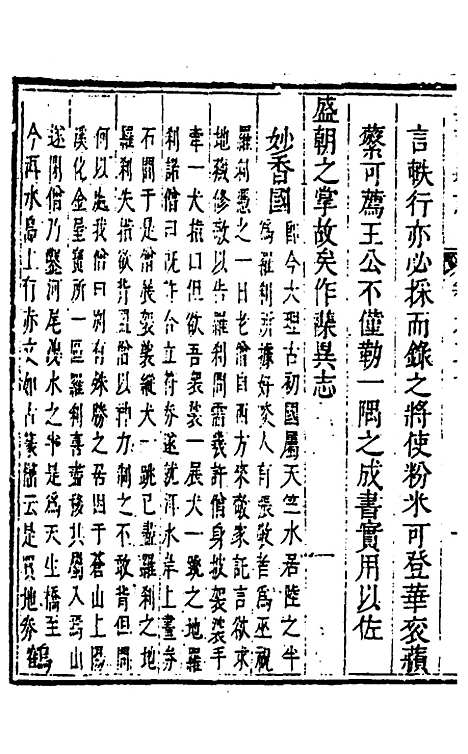 言軼行亦必採而錄之將使粉米可登華衮蘋
蘩可薦王公不僅勒一隅之成書實用以佐
盛朝之掌故矣作襍異志
妙香國
即今大理古初國屬天竺水居陸之半
為羅刹所據好啖人有張敬者為巫祝
羅刹憑之一日老僧自西方來敬家託言欲求
地藏修敬以告羅刹需幾許僧身披袈裟手
牽一犬指曰但欲吾袈裟一展犬一跳之地羅
刹諾僧曰既許合立符券遂就洱水岸上畫券
石間于是展袈裟縱犬一跳已盡羅刹之地
羅刹失措欲背盟僧以神力制之不敢背但問
何以處我僧曰別有殊勝之居因于蒼山上陽
溪化金屋寶所一區羅刹喜盡移其屬入焉山
遂閉僧乃鑿河尾洩水之半是為天生橋至
今洱水島上有赤文如古篆籀云是買地券 鶴